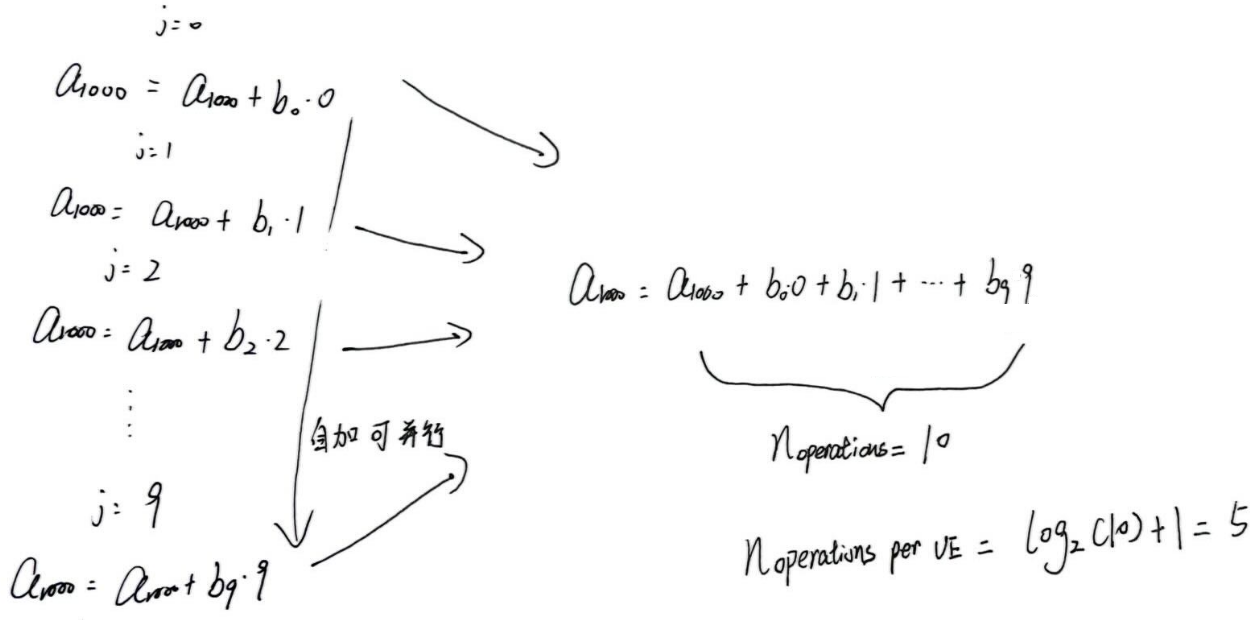 j=0
a₁₀₀₀ = a₁₀₀₀ + b₀·0
j=1
a₁₀₀₀ = a₁₀₀₀ + b₁·1
j=2
a₁₀₀₀ = a₁₀₀₀ + b₂·2
⋮
自加可并行
j=9
a₁₀₀₀ = a₁₀₀₀ + b₉·9
a₁₀₀₀ = a₁₀₀₀ + b₀·0 + b₁·1 + ··· + b₉·9
n operations = 10
n operations per UE = log₂(10) + 1 = 5